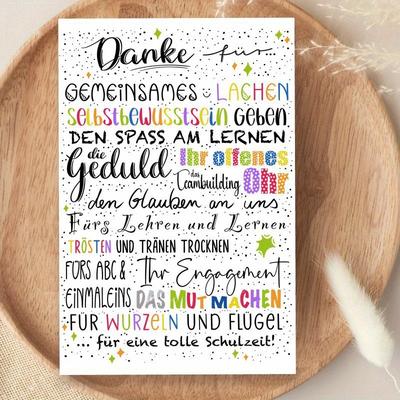 Danke für...
GEMEINSAMES LACHEN
selbstbewusstsein geben
DEN SPASS AM LERNEN
die Geduld Ihr offenes Ohr
das Teambuilding
den Glauben an uns
Fürs Lehren und Lernen
TRÖSTEN UND TRÄNEN TROCKNEN
FÜRS ABC & Ihr Engagement
EINMALEINS DAS MUT MACHEN
FÜR WURZELN UND FLÜGEL
... für eine tolle Schulzeit!